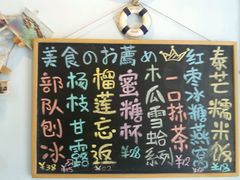 美食のお薦め
部队刨冰
¥38
杨枝甘露
榴莲忘返
蜜糖杯
¥28
木瓜雪蛤系列
一口抹茶
¥12
红枣冰糖燕窝
泰芒糯米饭